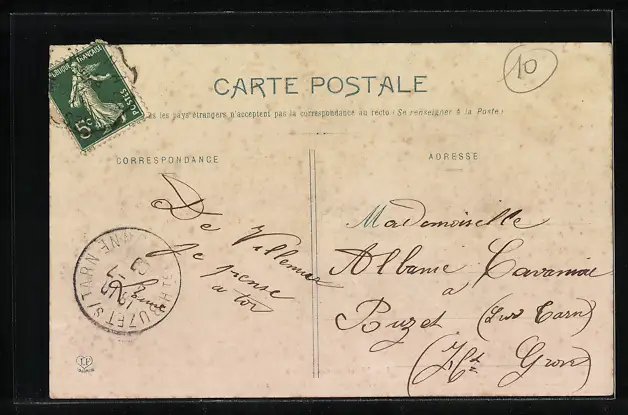 10
RÉPUBLIQUE FRANÇAISE
POSTES
5c
CARTE POSTALE
les pays étrangers n'acceptent pas la correspondance au recto (Se renseigner à la Poste)
CORRESPONDANCE
De Villemur
Je pense
a toi
BUZET S/ TARN
ADRESSE
Mademoiselle
Albanie
a
Buzet (sur Tarn)
(Hte Gronne)